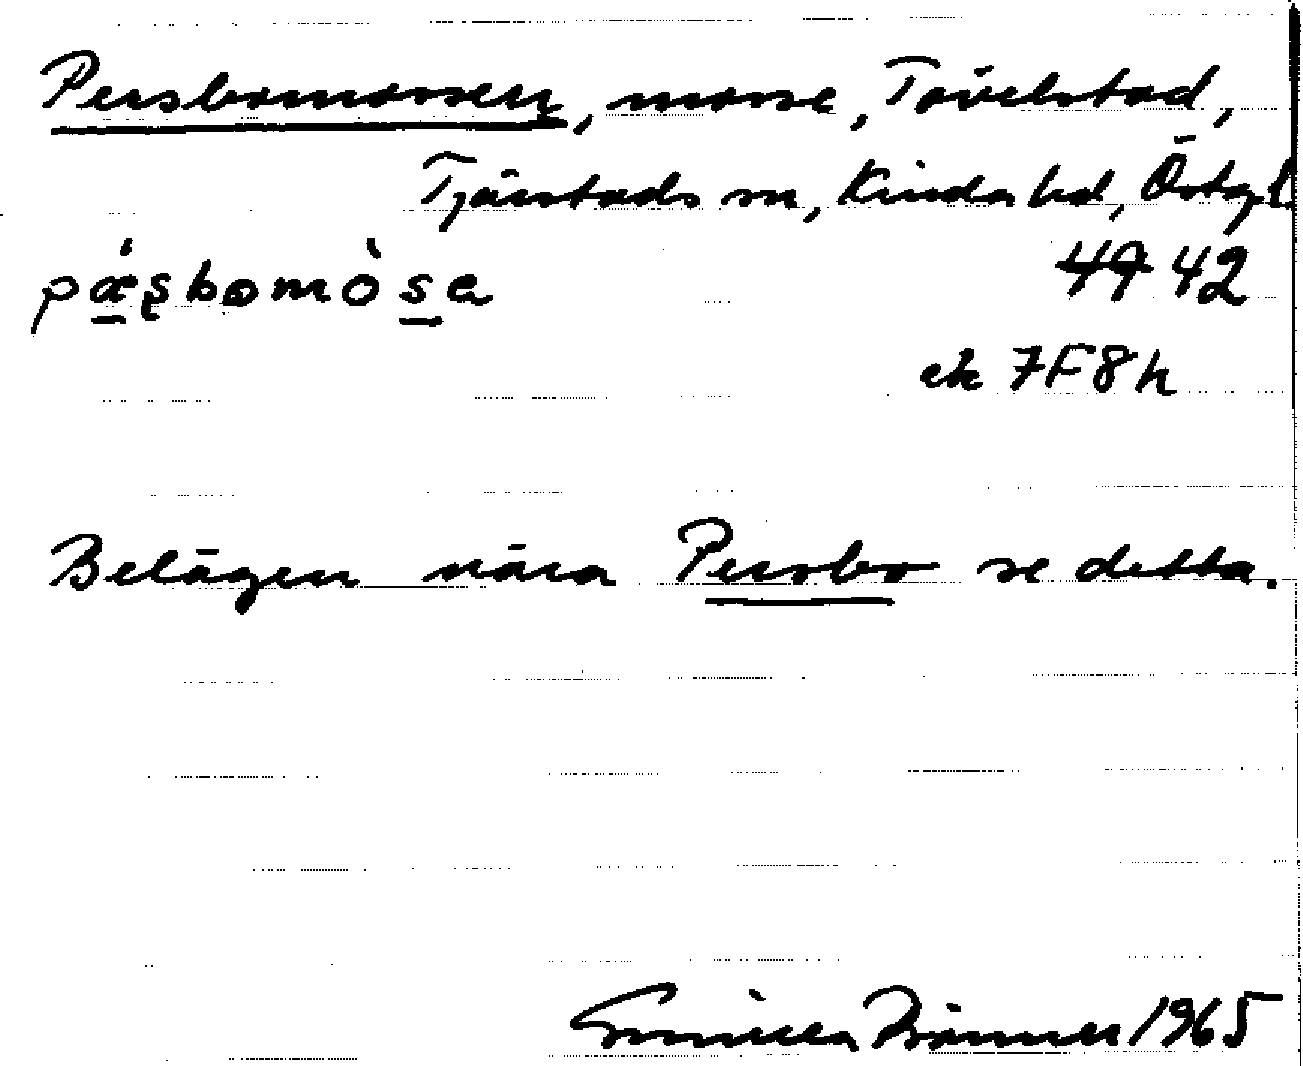 Persbomossen, mosse, Tävelstad,
Tjärstads sn, Kinda hd, Östgl.
pæ̀sbomòsa 42
ek 7F8h
Belägen nära Persbo se detta.
Gunilla 1965